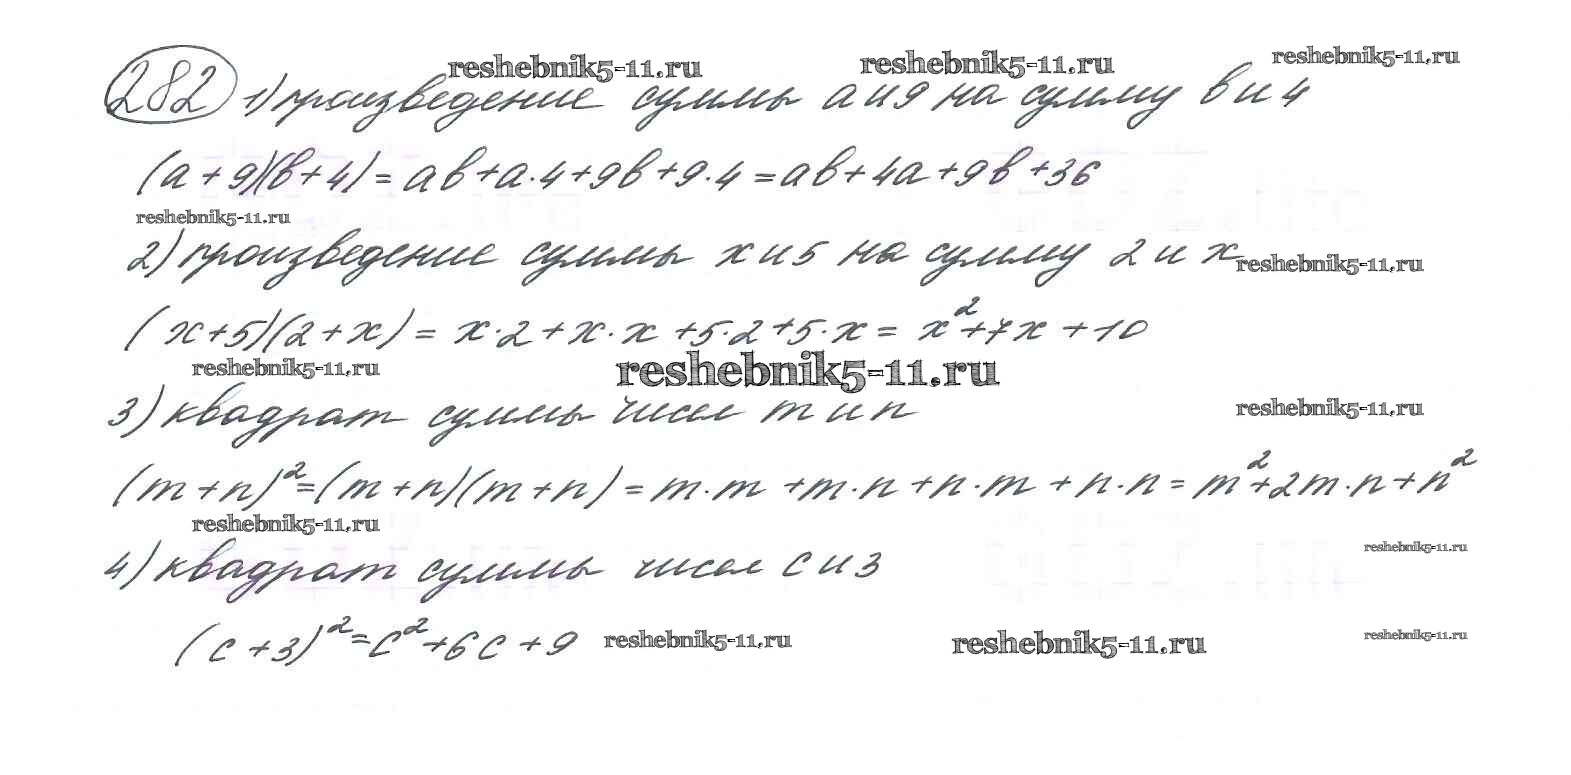 reshebnik5-11.ru reshebnik5-11.ru reshebnik5-11.ru
282 1) произведение суммы a и 9 на сумму b и 4
(a + 9)(b + 4) = ab + a·4 + 9b + 9·4 = ab + 4a + 9b + 36
reshebnik5-11.ru
2) произведение суммы x и 5 на сумму 2 и x
reshebnik5-11.ru
(x + 5)(2 + x) = x·2 + x·x + 5·2 + 5·x = x² + 7x + 10
reshebnik5-11.ru reshebnik5-11.ru
3) квадрат суммы чисел m и n
reshebnik5-11.ru
(m + n)² = (m + n)(m + n) = m·m + m·n + n·m + n·n = m² + 2m·n + n²
reshebnik5-11.ru
4) квадрат суммы чисел c и 3
reshebnik5-11.ru
(c + 3)² = c² + 6c + 9
reshebnik5-11.ru reshebnik5-11.ru reshebnik5-11.ru